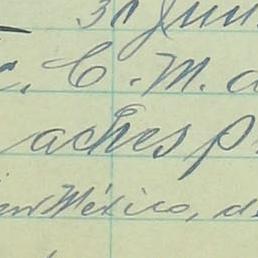 31 Jun
C. M. d
aches p
en México, d